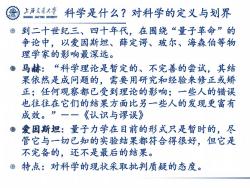 上海交通大学
科学是什么？对科学的定义与划界
到二十世纪三、四十年代，在围绕“量子革命”的
争论中，以爱因斯坦、薛定谔、玻尔、海森伯等物
理学家的影响最深远。
马赫：“科学理论是暂定的、不完善的尝试，其结
果依然是成问题的，需要用研究和经验来修正或矫
正；任何观察都已受到理论的影响；一些人的错误
也往往在它们的结果方面比另一些人的发现更富有
成效。”——《认识与谬误》
爱因斯坦：量子力学在目前的形式只是暂时的，尽
管它与一切已知的实验结果都符合得很好，但它是
不完备的，还不是最后的结果。
特点：对科学的现状采取批判质疑的态度。